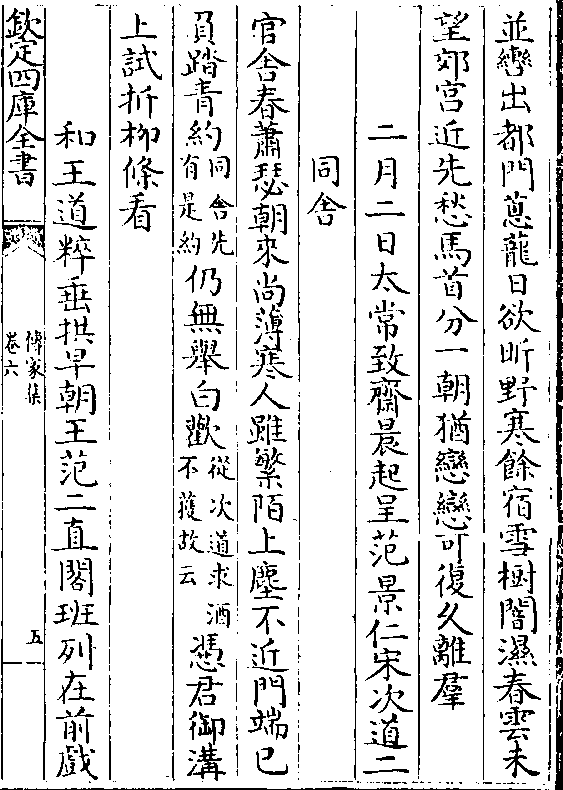 並轡出都門蔥蘢日欲昕野寒餘宿雪樹闇濕春雲未
望郊宫近先愁馬首分一朝猶戀戀可復久離羣
二月二日太常致齋晨起呈范景仁宋次道二
同舍
官舍春蕭瑟朝來尚薄寒人雖繁陌上塵不近門端已
負踏青約同舍先有是約仍無舉白歡從次道求酒不獲故云憑君御溝
上試折柳條看
和王道粹垂拱早朝王范二直閣班列在前戲
欽定四庫全書
傳家集
卷六
五